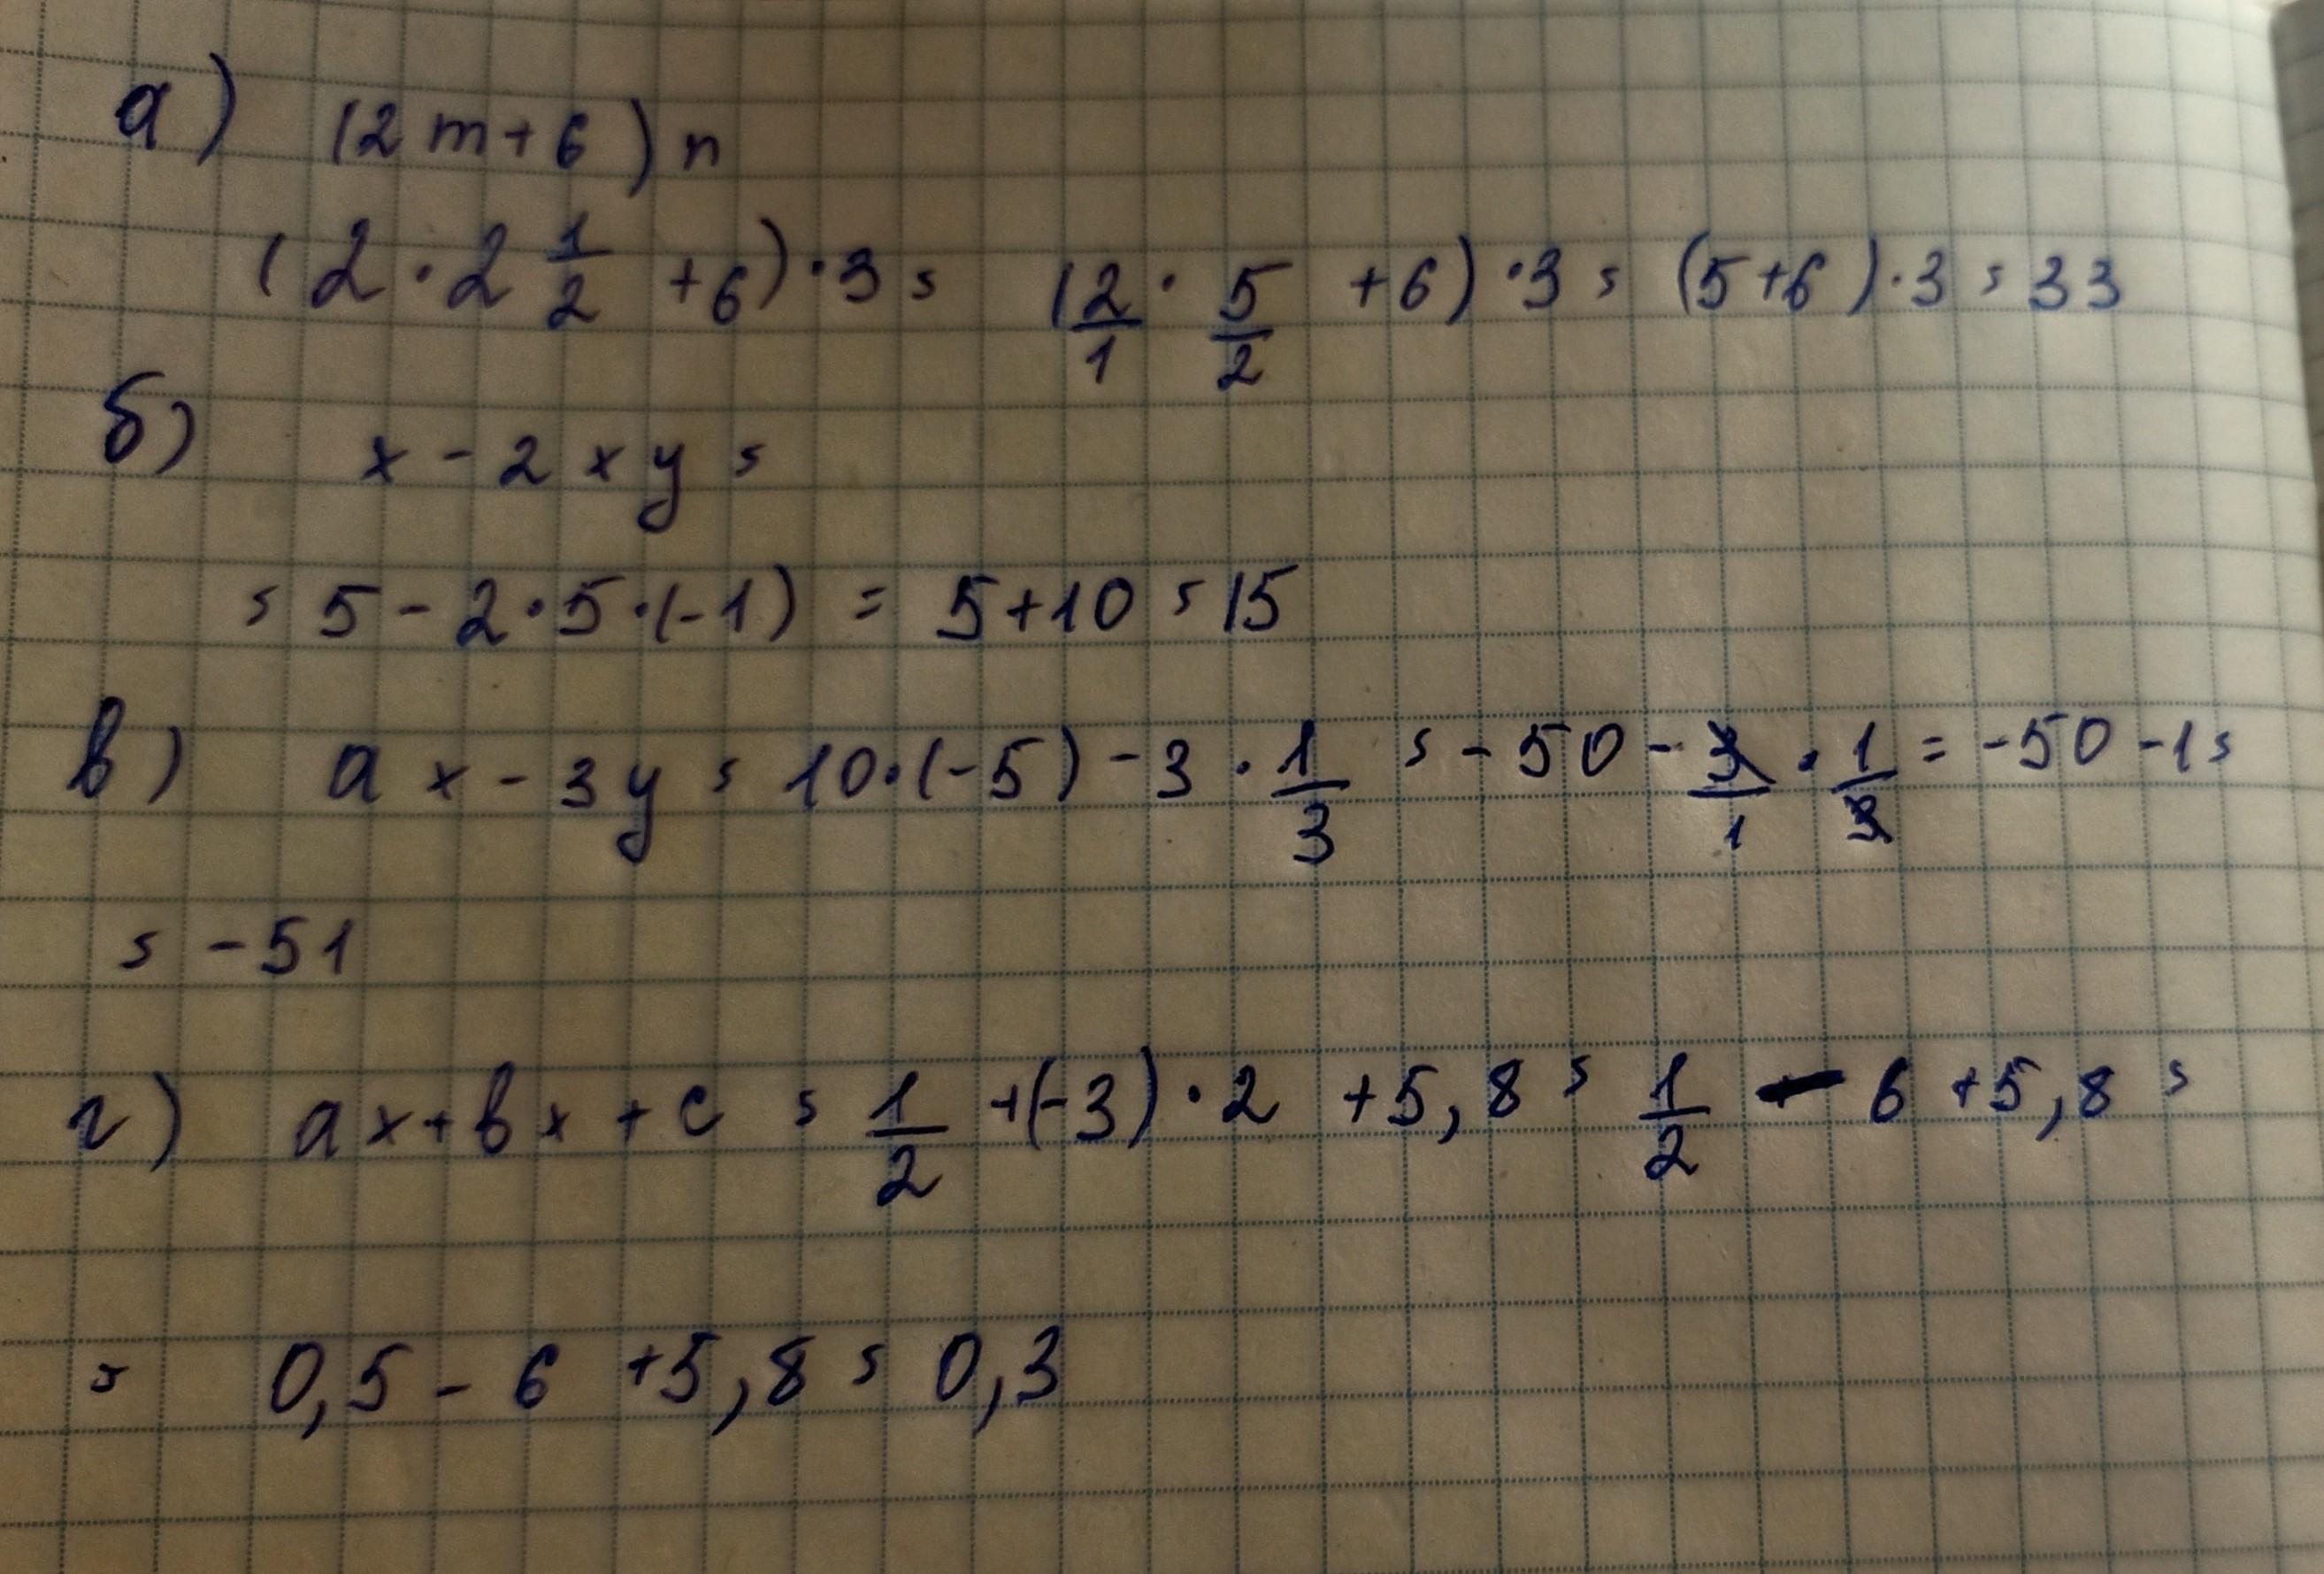 а) (2m+6)n
(2·2 1/2 +6)·3 = (2/1 · 5/2 +6)·3 = (5+6)·3 = 33
б) x - 2xy =
= 5 - 2·5·(-1) = 5+10 = 15
в) ax - 3y = 10·(-5) - 3 · 1/3 = -50 - 3/1 · 1/3 = -50 -1 =
= -51
г) ax+bx+c = 1/2 +(-3)·2 +5,8 = 1/2 - 6 +5,8 =
= 0,5 - 6 +5,8 = 0,3